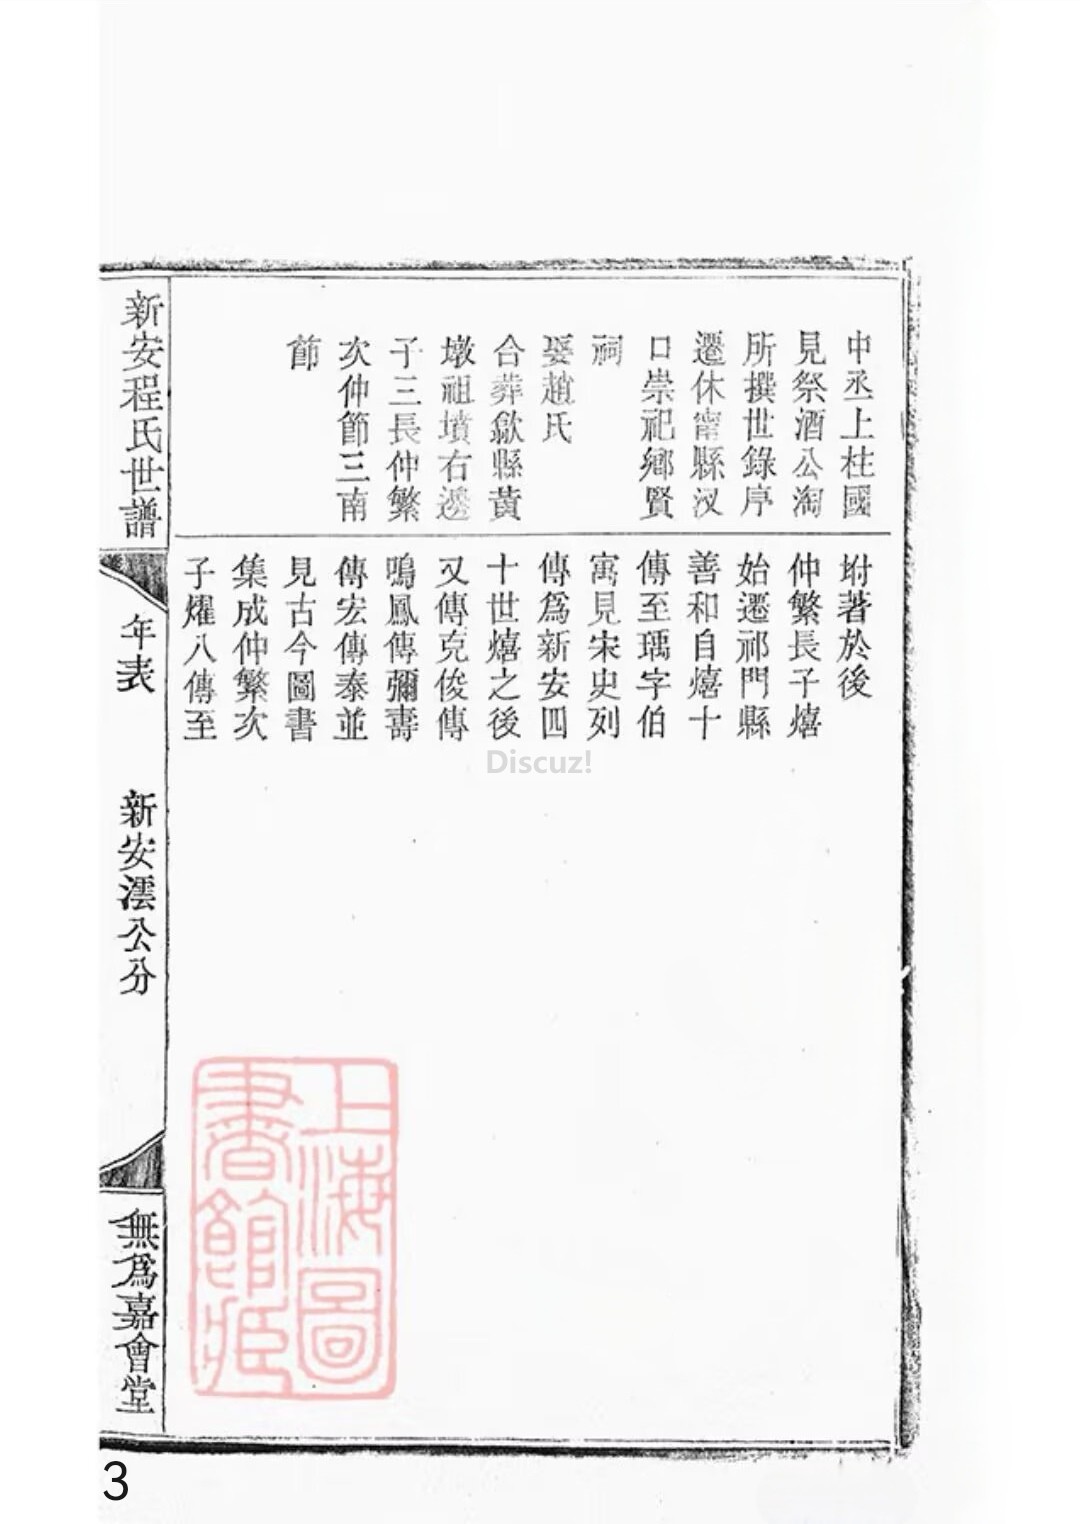 中丞上柱國
見祭酒公淘
所撰世錄序
遷休甯縣汊
口崇祀鄉賢
祠
娶趙氏
合葬歙縣黃
墩祖墳右邊
子三長仲繁
次仲節三南
節
坿著於後
仲繁長子熺
始遷祁門縣
善和自熺十
傳至瑀字伯
寓見宋史列
傳爲新安四
十世熺之後
又傳克俊傳
鳴鳳傳彌壽
傳宏傳泰並
見古今圖書
集成仲繁次
子燿八傳至
新安程氏世譜
年表
新安澐公分
無爲嘉會堂
上海圖
書館藏
Discuz!
3